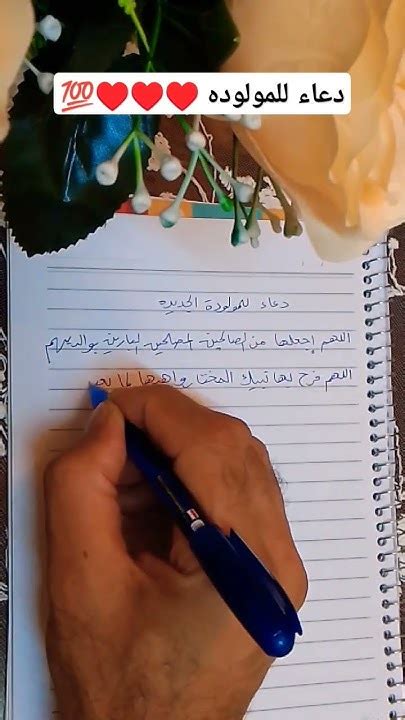 دعاء للمولوده ♥️♥️♥️💯
دعاء للمولودة الجديده
اللهم إجعلها من الصالحين المصلحين البارين بوالديهم
اللهم فرح بها نبيك المختار واهدها لما